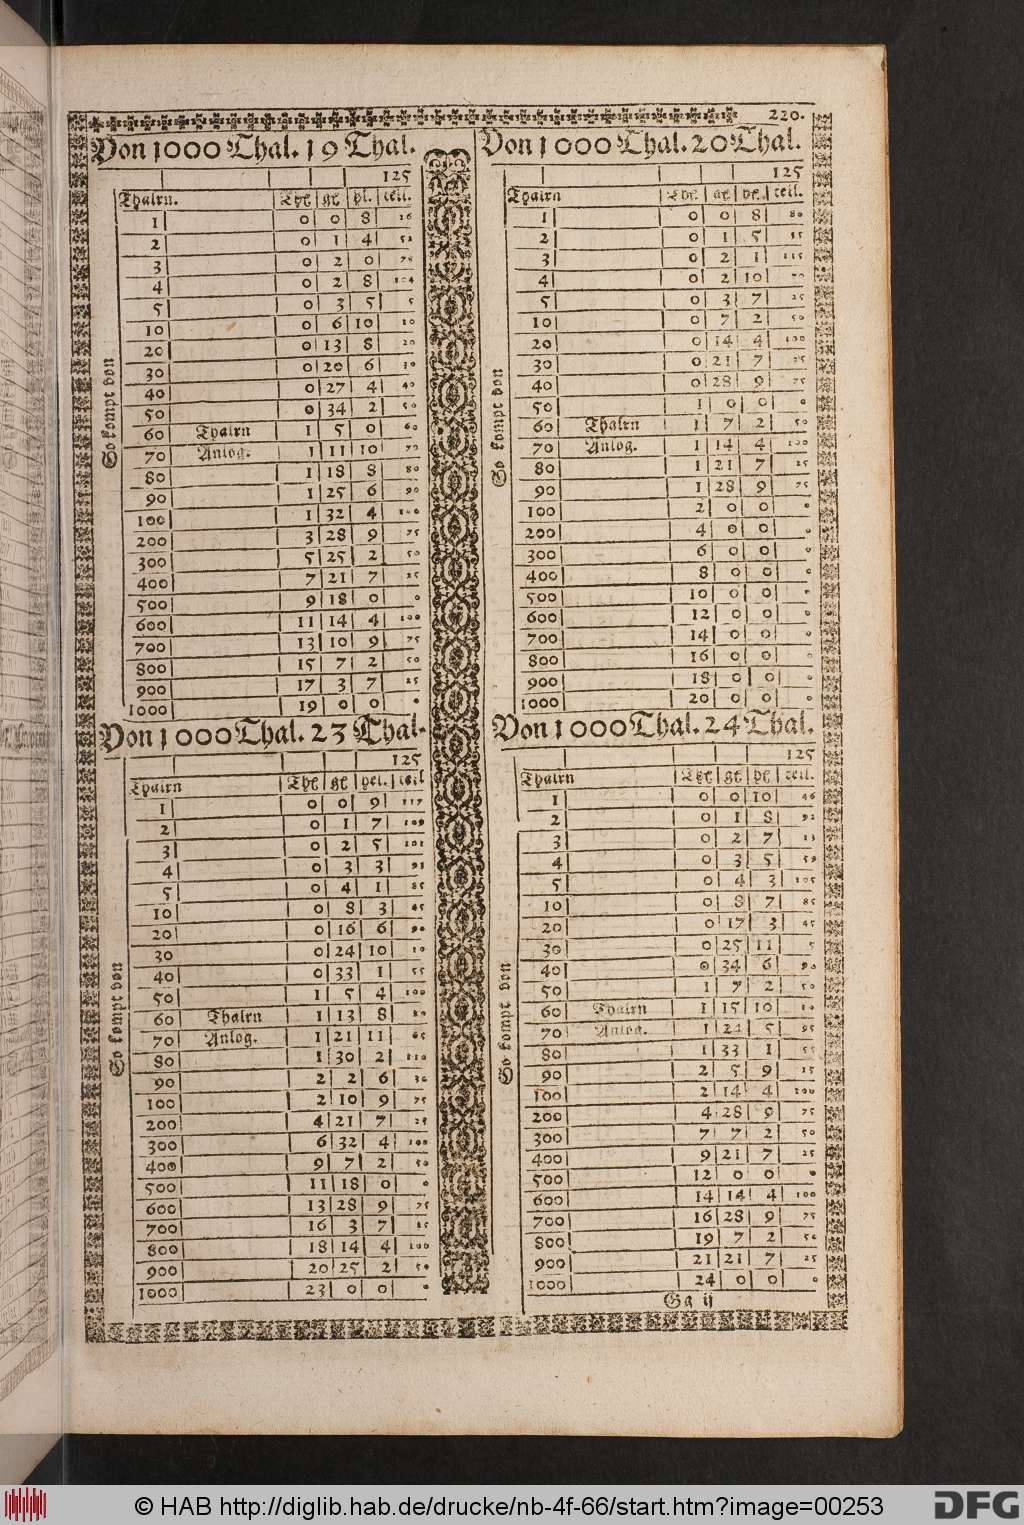 220.
Von 1000 Thal. 19 Thal.
125
Thalrn. Thl gl hl. teil.
So kompt von
1 0 0 8 26
2 0 1 4 52
3 0 2 0 78
4 0 2 8 104
5 0 3 5 5
10 0 6 10 10
20 0 13 8 20
30 0 20 6 30
40 0 27 4 40
50 0 34 2 50
60 Thalrn 1 5 0 60
70 Anlog. 1 11 10 70
80 1 18 8 80
90 1 25 6 90
100 1 32 4 100
200 3 28 9 75
300 5 25 2 50
400 7 21 7 25
500 9 18 0 0
600 11 14 4 100
700 13 10 9 75
800 15 7 2 50
900 17 3 7 25
1000 19 0 0 0
Von 1000 Thal. 20 Thal.
125
Thalrn Thl. gl hl. teil.
So kompt von
1 0 0 8 80
2 0 1 5 35
3 0 2 1 115
4 0 2 10 70
5 0 3 7 25
10 0 7 2 50
20 0 14 4 100
30 0 21 7 25
40 0 28 9 75
50 1 0 0 0
60 Thalrn 1 7 2 50
70 Anlog. 1 14 4 100
80 1 21 7 25
90 1 28 9 75
100 2 0 0 0
200 4 0 0 0
300 6 0 0 0
400 8 0 0 0
500 10 0 0 0
600 12 0 0 0
700 14 0 0 0
800 16 0 0 0
900 18 0 0 0
1000 20 0 0 0
Von 1000 Thal. 23 Thal.
125
Thalrn Thl gl hel. teil
So kompt von
1 0 0 9 117
2 0 1 7 109
3 0 2 5 101
4 0 3 3 93
5 0 4 1 85
10 0 8 3 45
20 0 16 6 90
30 0 24 10 10
40 0 33 1 55
50 1 5 4 100
60 Thalrn 1 13 8 20
70 Anlog. 1 21 11 65
80 1 30 2 110
90 2 2 6 30
100 2 10 9 75
200 4 21 7 25
300 6 32 4 100
400 9 7 2 50
500 11 18 0 0
600 13 28 9 75
700 16 3 7 25
800 18 14 4 100
900 20 25 2 50
1000 23 0 0 0
Von 1000 Thal. 24 Thal.
125
Thalrn Thl gl hl teil.
So kompt von
1 0 0 10 46
2 0 1 8 92
3 0 2 7 13
4 0 3 5 59
5 0 4 3 105
10 0 8 7 85
20 0 17 3 45
30 0 25 11 5
40 0 34 6 90
50 1 7 2 50
60 Thalrn 1 15 10 10
70 Anlog. 1 24 5 95
80 1 33 1 55
90 2 5 9 15
100 2 14 4 100
200 4 28 9 75
300 7 7 2 50
400 9 21 7 25
500 12 0 0 0
600 14 14 4 100
700 16 28 9 75
800 19 7 2 50
900 21 21 7 25
1000 24 0 0 0
Gg ij
© HAB http://diglib.hab.de/drucke/nb-4f-66/start.htm?image=00253
DFG